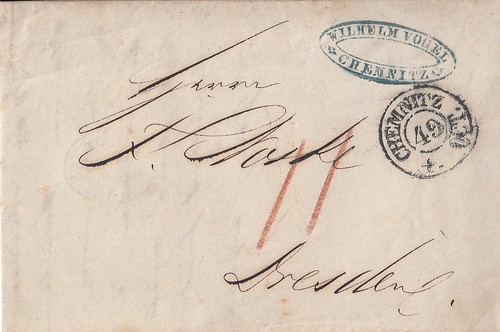 WILHELM VOGEL
CHEMNITZ
CHEMNITZ
49
Herrn
F.
Dresden.